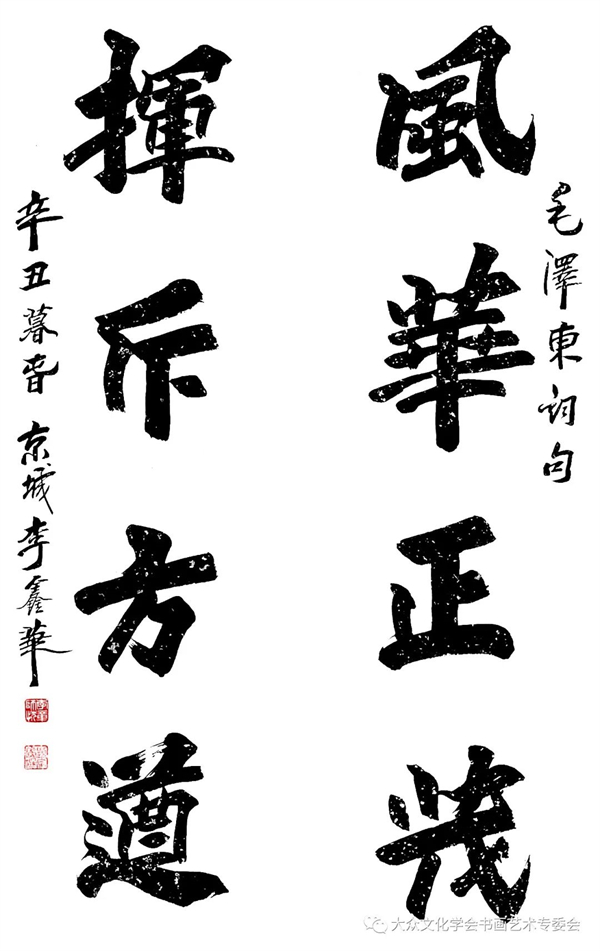 毛澤東詞句
風華正茂
揮斥方遒
辛丑暮春 京城李鑫華
大众文化学会书画艺术专委会